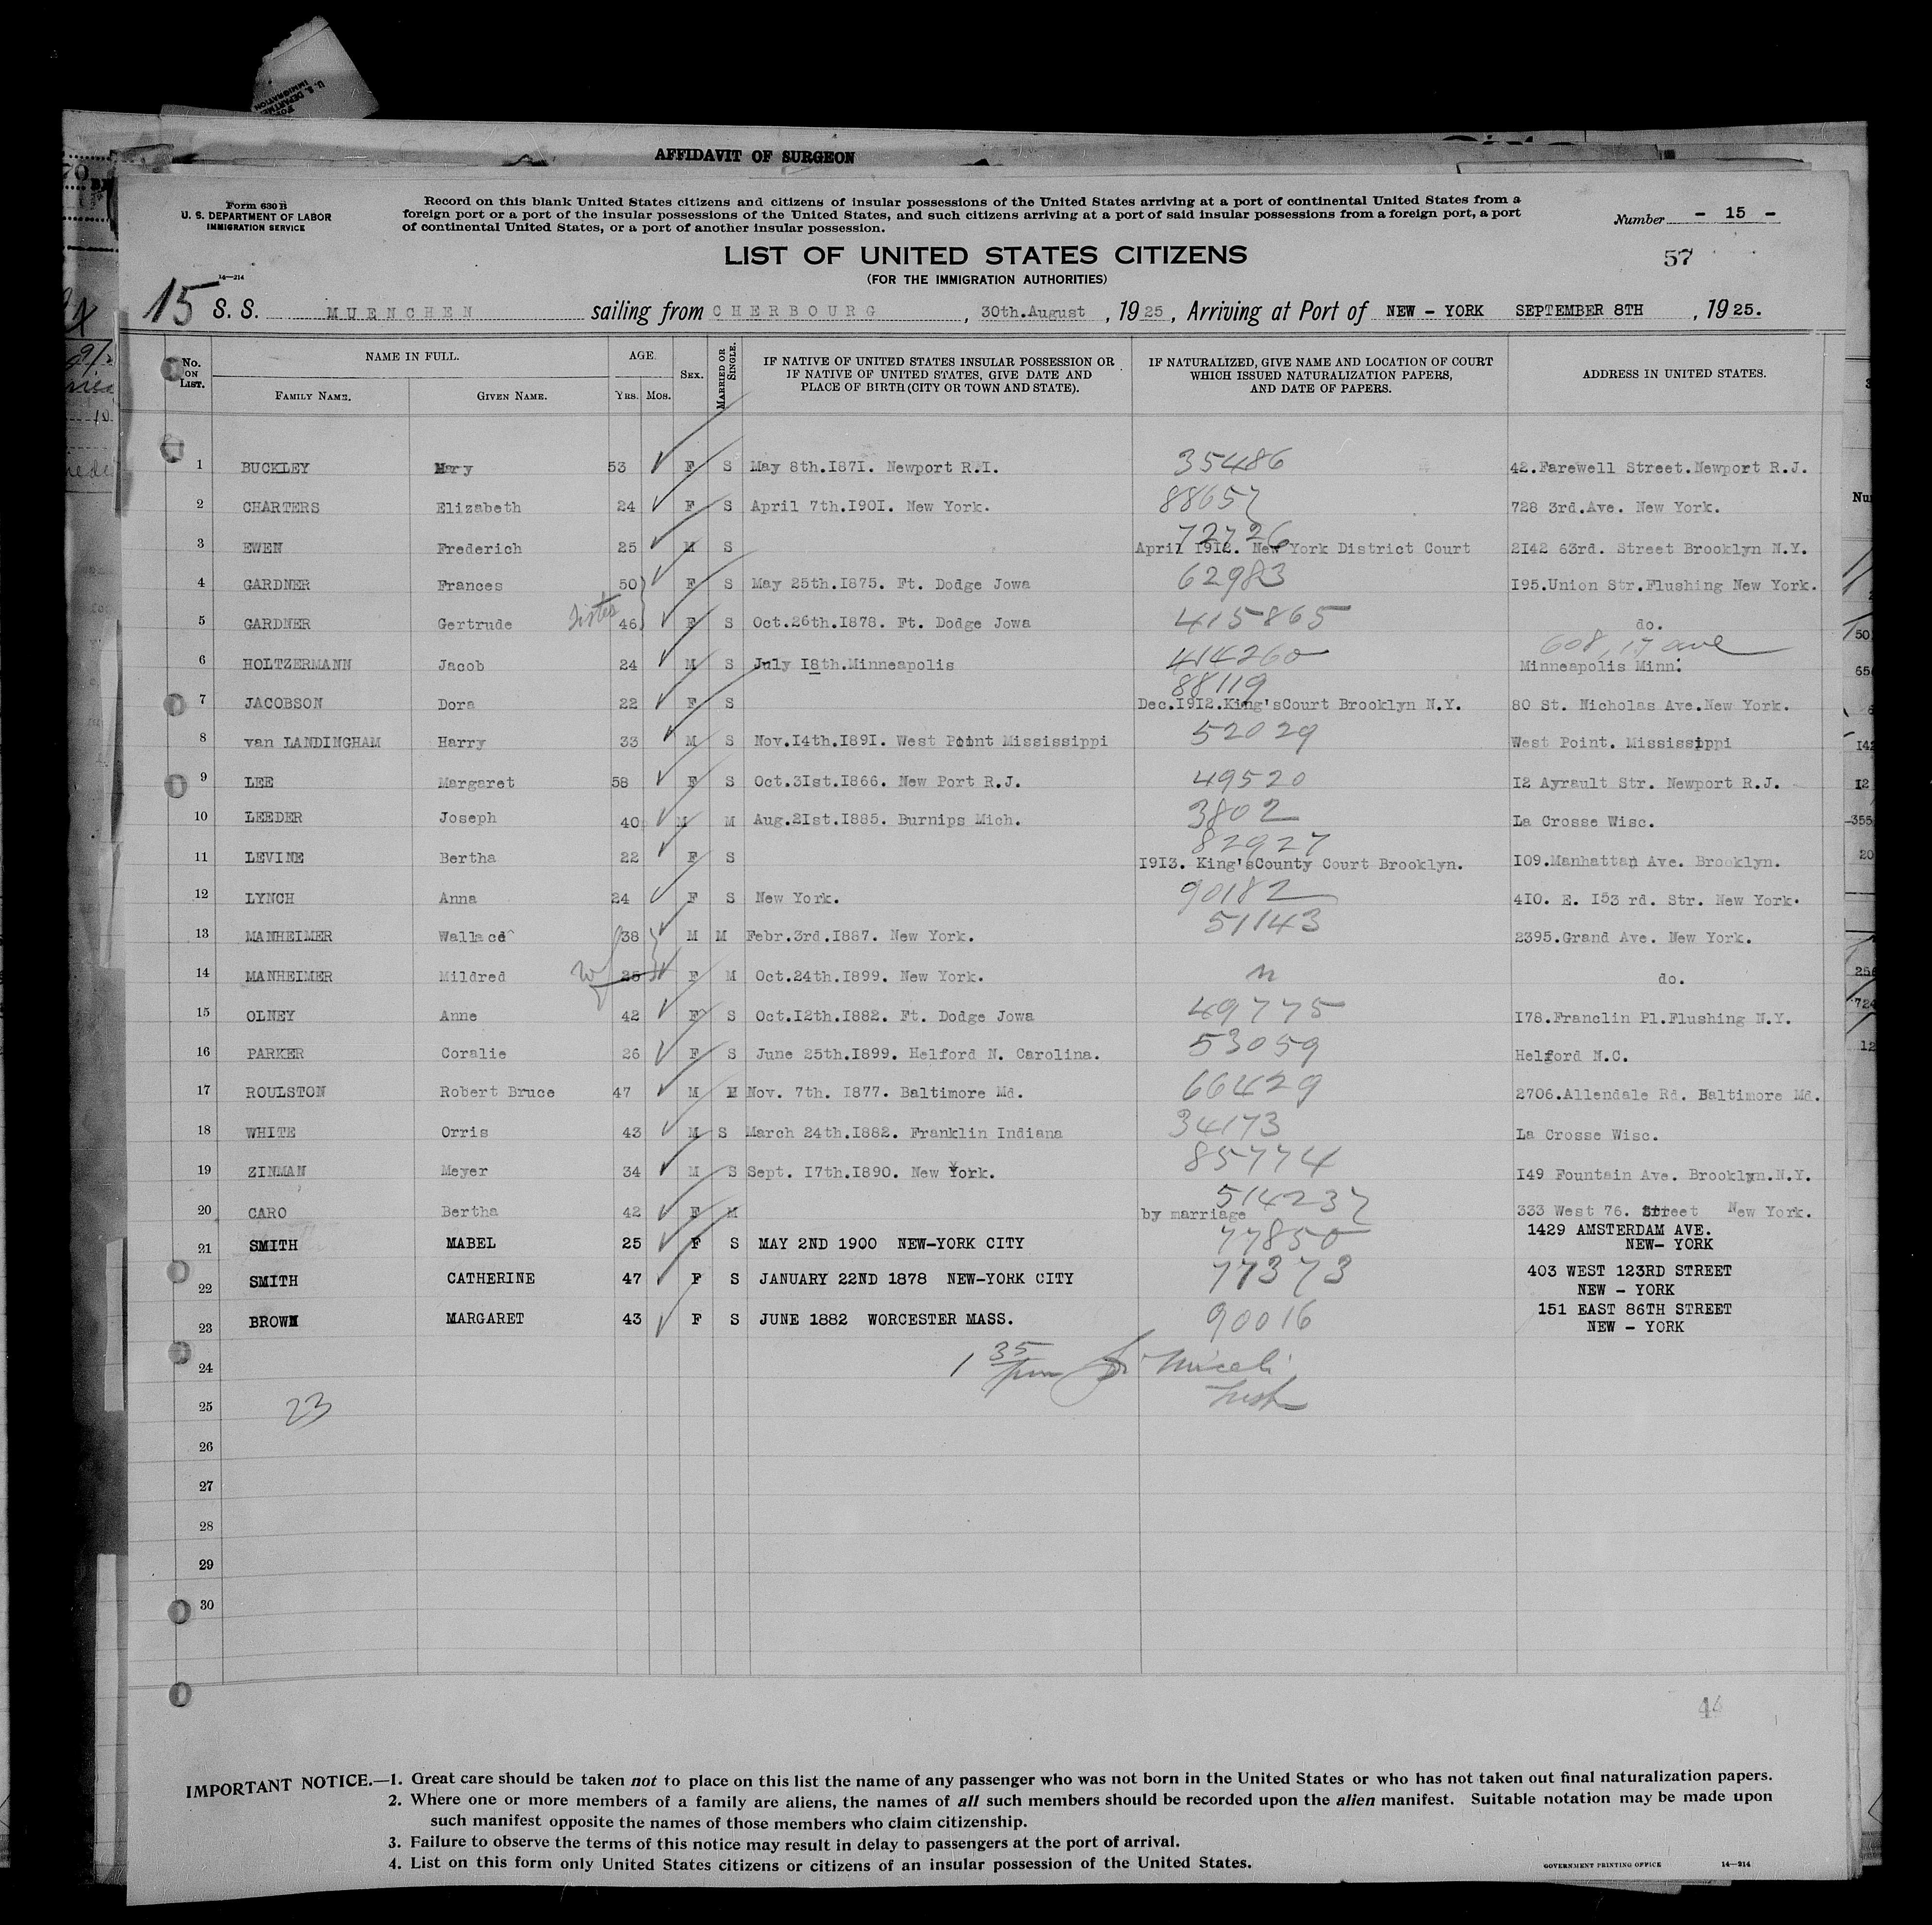 AFFIDAVIT OF SURGEON
Form 630 B
U. S. DEPARTMENT OF LABOR
IMMIGRATION SERVICE
14—214
Record on this blank United States citizens and citizens of insular possessions of the United States arriving at a port of continental United States from a
foreign port or a port of the insular possessions of the United States, and such citizens arriving at a port of said insular possessions from a foreign port, a port
of continental United States, or a port of another insular possession.
Number - 15 -
57
LIST OF UNITED STATES CITIZENS
(FOR THE IMMIGRATION AUTHORITIES)
15 S. S. MUENCHEN sailing from CHERBOURG, 30th.August, 1925, Arriving at Port of NEW - YORK SEPTEMBER 8TH, 1925.
No. ON LIST. NAME IN FULL. FAMILY NAME. GIVEN NAME. AGE. YRS. MOS. SEX. MARRIED OR SINGLE. IF NATIVE OF UNITED STATES INSULAR POSSESSION OR IF NATIVE OF UNITED STATES, GIVE DATE AND PLACE OF BIRTH (CITY OR TOWN AND STATE). IF NATURALIZED, GIVE NAME AND LOCATION OF COURT WHICH ISSUED NATURALIZATION PAPERS, AND DATE OF PAPERS. ADDRESS IN UNITED STATES.
1 BUCKLEY Mary 53 F S May 8th.I87I. Newport R.I. 35486 42.Farewell Street.Newport R.J.
2 CHARTERS Elizabeth 24 F S April 7th.I90I. New York. 88657 728 3rd.Ave. New York.
3 EWEN Frederich 25 M S 72726 April I9I2. New York District Court 2I42 63rd. Street Brooklyn N.Y.
4 GARDNER Frances 50 F S May 25th.I875. Ft. Dodge Jowa 62983 I95.Union Str.Flushing New York.
5 GARDNER Gertrude sister 46 F S Oct.26th.I878. Ft. Dodge Jowa 415865 do.
6 HOLTZERMANN Jacob 24 M S July I8th.Minneapolis 414260 608, 17 ave Minneapolis Minn.
7 JACOBSON Dora 22 F S 88119 Dec.I9I2.King'sCourt Brooklyn N.Y. 80 St. Nicholas Ave.New York.
8 van LANDINGHAM Harry 33 M S Nov.I4th.I89I. West Point Mississippi 52029 West Point. Mississippi
9 LEE Margaret 58 F S Oct.3Ist.I866. New Port R.J. 49520 I2 Ayrault Str. Newport R.J.
10 LEEDER Joseph 40 M M Aug.2Ist.I885. Burnips Mich. 3802 La Crosse Wisc.
11 LEVINE Bertha 22 F S 82927 I9I3. King'sCounty Court Brooklyn. I09.Manhattan Ave. Brooklyn.
12 LYNCH Anna 24 F S New York. 90182 4I0. E. I53 rd. Str. New York.
13 MANHEIMER Wallace 38 M M Febr.3rd.I887. New York. 51143 2395.Grand Ave. New York.
14 MANHEIMER Mildred wf 25 F M Oct.24th.I899. New York. do.
15 OLNEY Anne 42 F S Oct.I2th.I882. Ft. Dodge Jowa 49775 I78.Franclin Pl.Flushing N.Y.
16 PARKER Coralie 26 F S June 25th.I899. Helford N. Carolina. 53059 Helford N.C.
17 ROULSTON Robert Bruce 47 M M Nov. 7th. I877. Baltimore Md. 66429 2706.Allendale Rd. Baltimore Md.
18 WHITE Orris 43 M S March 24th.I882. Franklin Indiana 34173 La Crosse Wisc.
19 ZINMAN Meyer 34 M S Sept. I7th.I890. New York. 85774 I49 Fountain Ave. Brooklyn.N.Y.
20 CARO Bertha 42 F M 514237 by marriage 333 West 76. Street New York.
21 SMITH MABEL 25 F S MAY 2ND 1900 NEW-YORK CITY 77850 1429 AMSTERDAM AVE. NEW- YORK
22 SMITH CATHERINE 47 F S JANUARY 22ND 1878 NEW-YORK CITY 77373 403 WEST 123RD STREET NEW - YORK
23 BROWN MARGARET 43 F S JUNE 1882 WORCESTER MASS. 90016 151 EAST 86TH STREET NEW - YORK
24 1 35 pm
25 23
26
27
28
29
30
IMPORTANT NOTICE.—1. Great care should be taken not to place on this list the name of any passenger who was not born in the United States or who has not taken out final naturalization papers.
2. Where one or more members of a family are aliens, the names of all such members should be recorded upon the alien manifest. Suitable notation may be made upon
such manifest opposite the names of those members who claim citizenship.
3. Failure to observe the terms of this notice may result in delay to passengers at the port of arrival.
4. List on this form only United States citizens or citizens of an insular possession of the United States.
GOVERNMENT PRINTING OFFICE 14—214